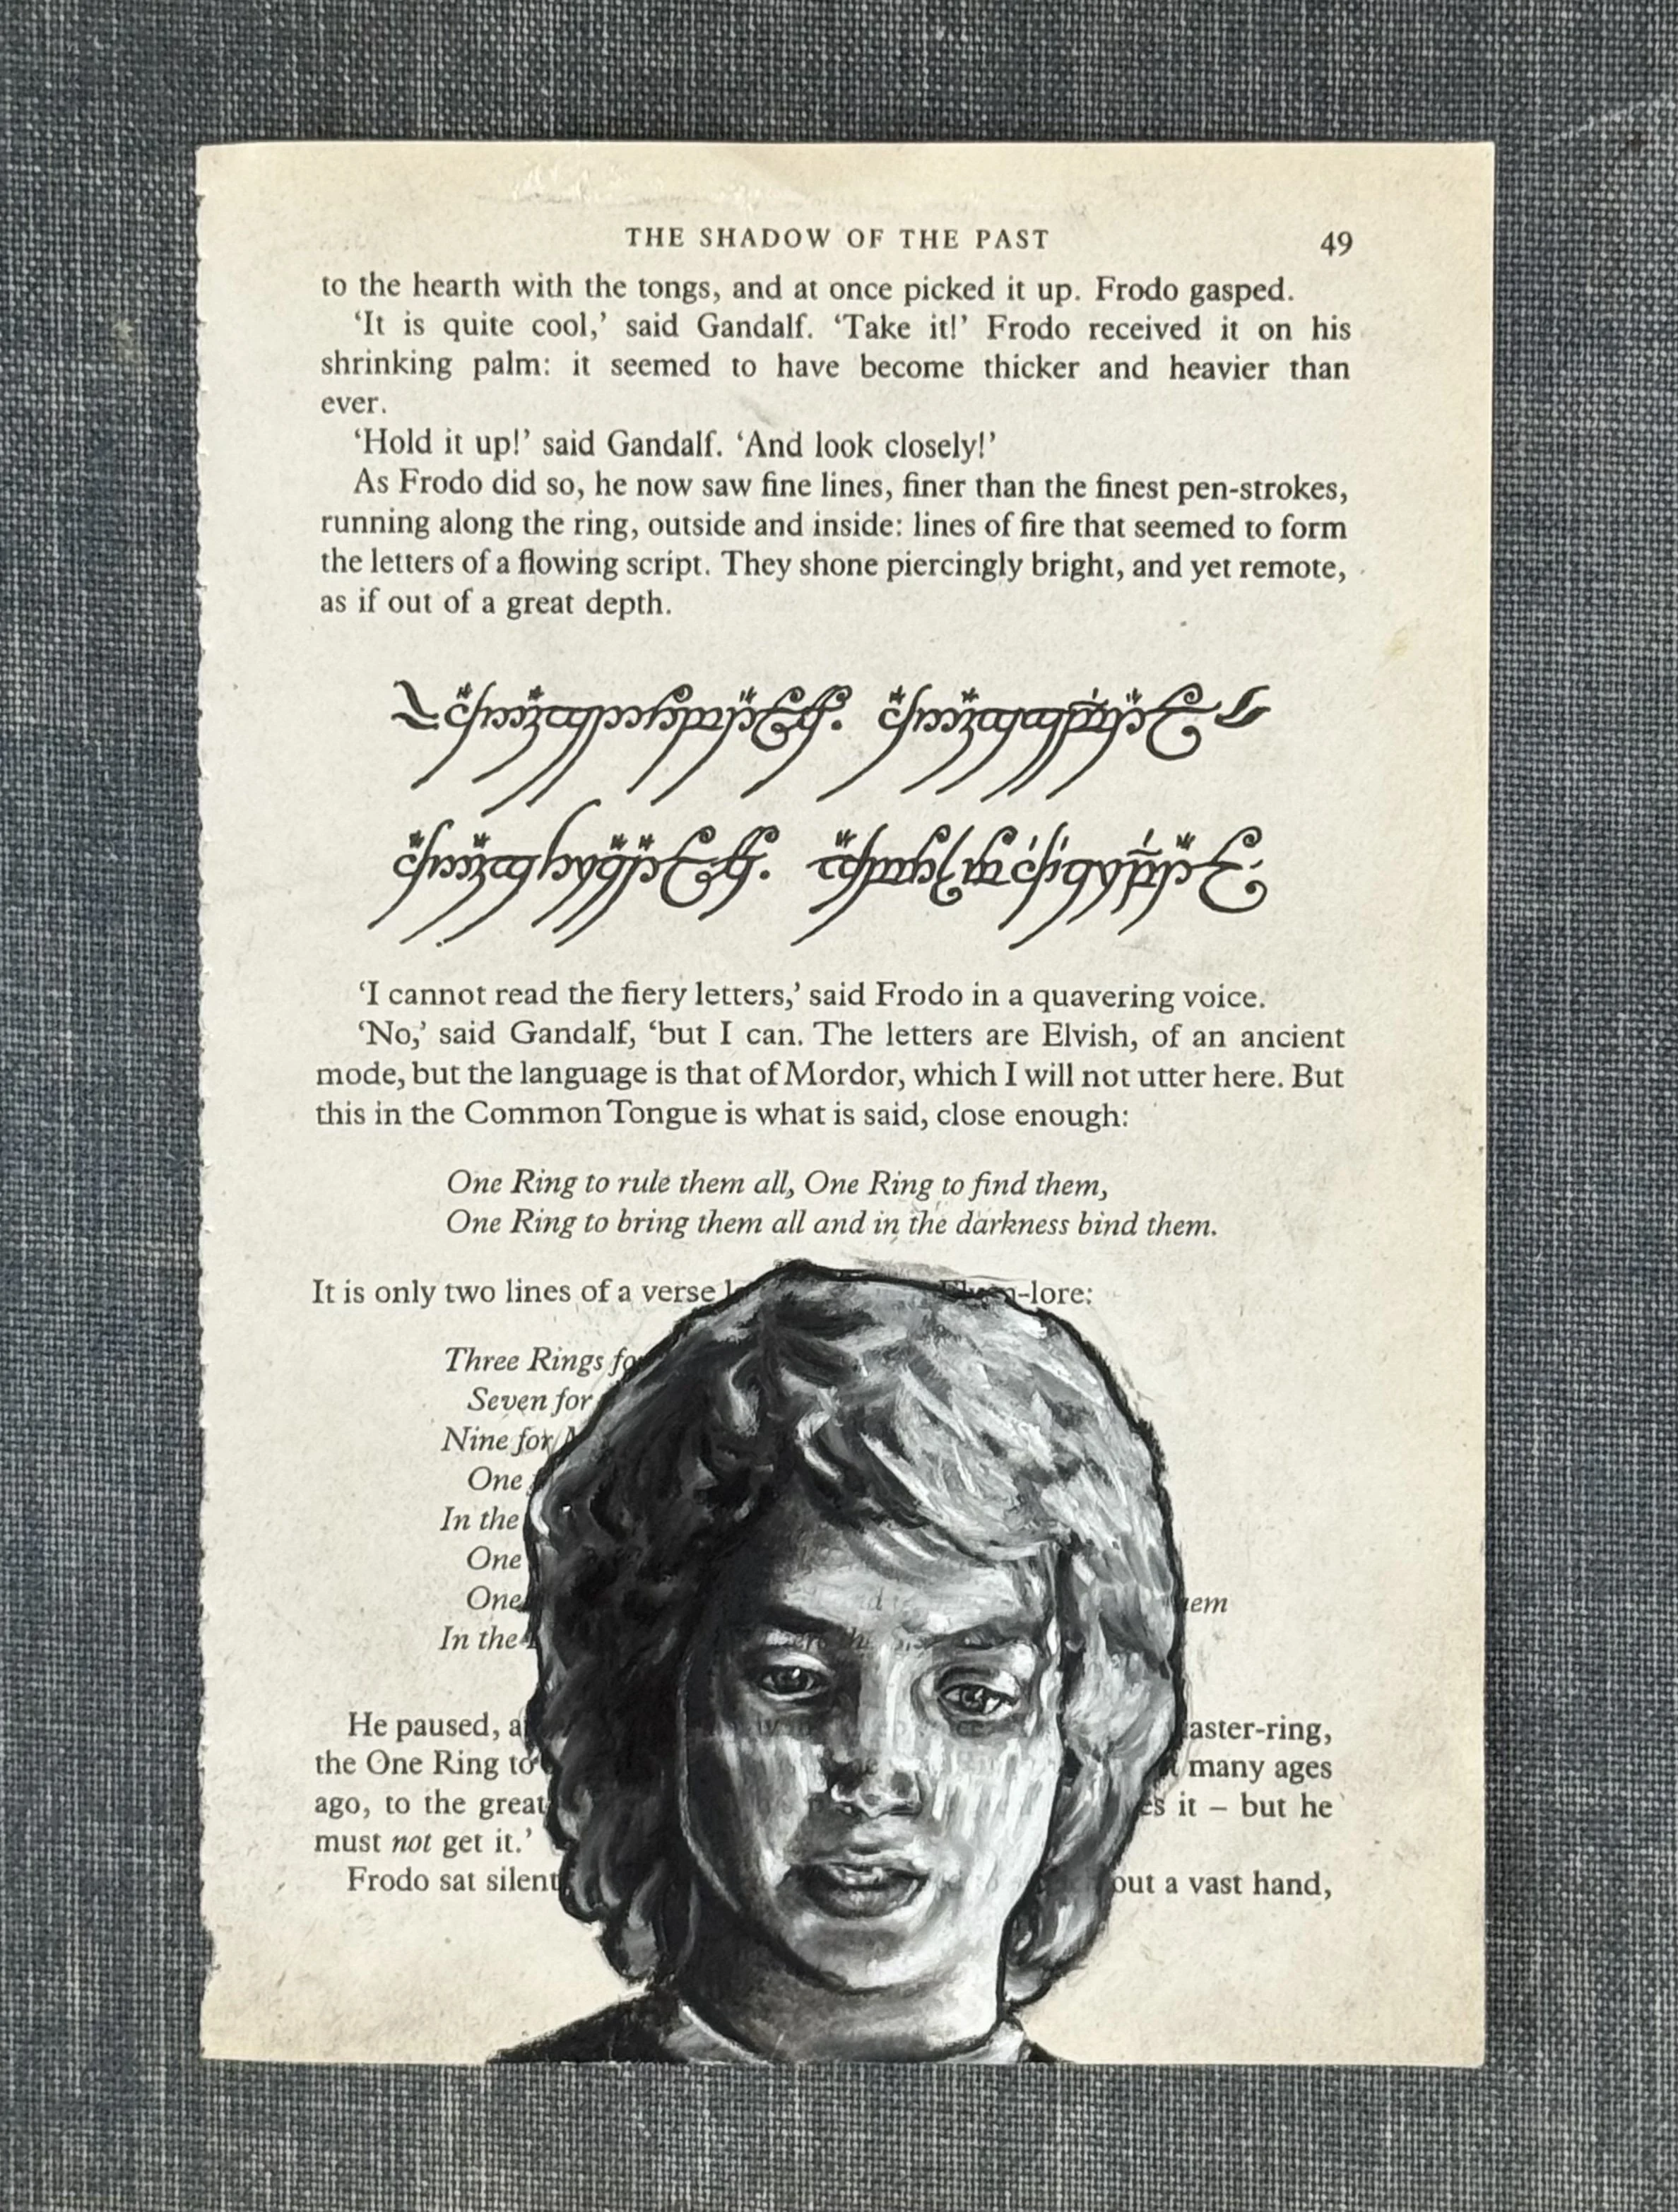 THE SHADOW OF THE PAST 49
to the hearth with the tongs, and at once picked it up. Frodo gasped.
‘It is quite cool,’ said Gandalf. ‘Take it!’ Frodo received it on his
shrinking palm: it seemed to have become thicker and heavier than
ever.
‘Hold it up!’ said Gandalf. ‘And look closely!’
As Frodo did so, he now saw fine lines, finer than the finest pen-strokes,
running along the ring, outside and inside: lines of fire that seemed to form
the letters of a flowing script. They shone piercingly bright, and yet remote,
as if out of a great depth.
‘I cannot read the fiery letters,’ said Frodo in a quavering voice.
‘No,’ said Gandalf, ‘but I can. The letters are Elvish, of an ancient
mode, but the language is that of Mordor, which I will not utter here. But
this in the Common Tongue is what is said, close enough:
One Ring to rule them all, One Ring to find them,
One Ring to bring them all and in the darkness bind them.
It is only two lines of a verse -lore:
Three Rings
Seven for
Nine for
One
In the
One
One
In the
He paused, aster-ring,
the One Ring to many ages
ago, to the great it – but he
must not get it.’
Frodo sat silent out a vast hand,